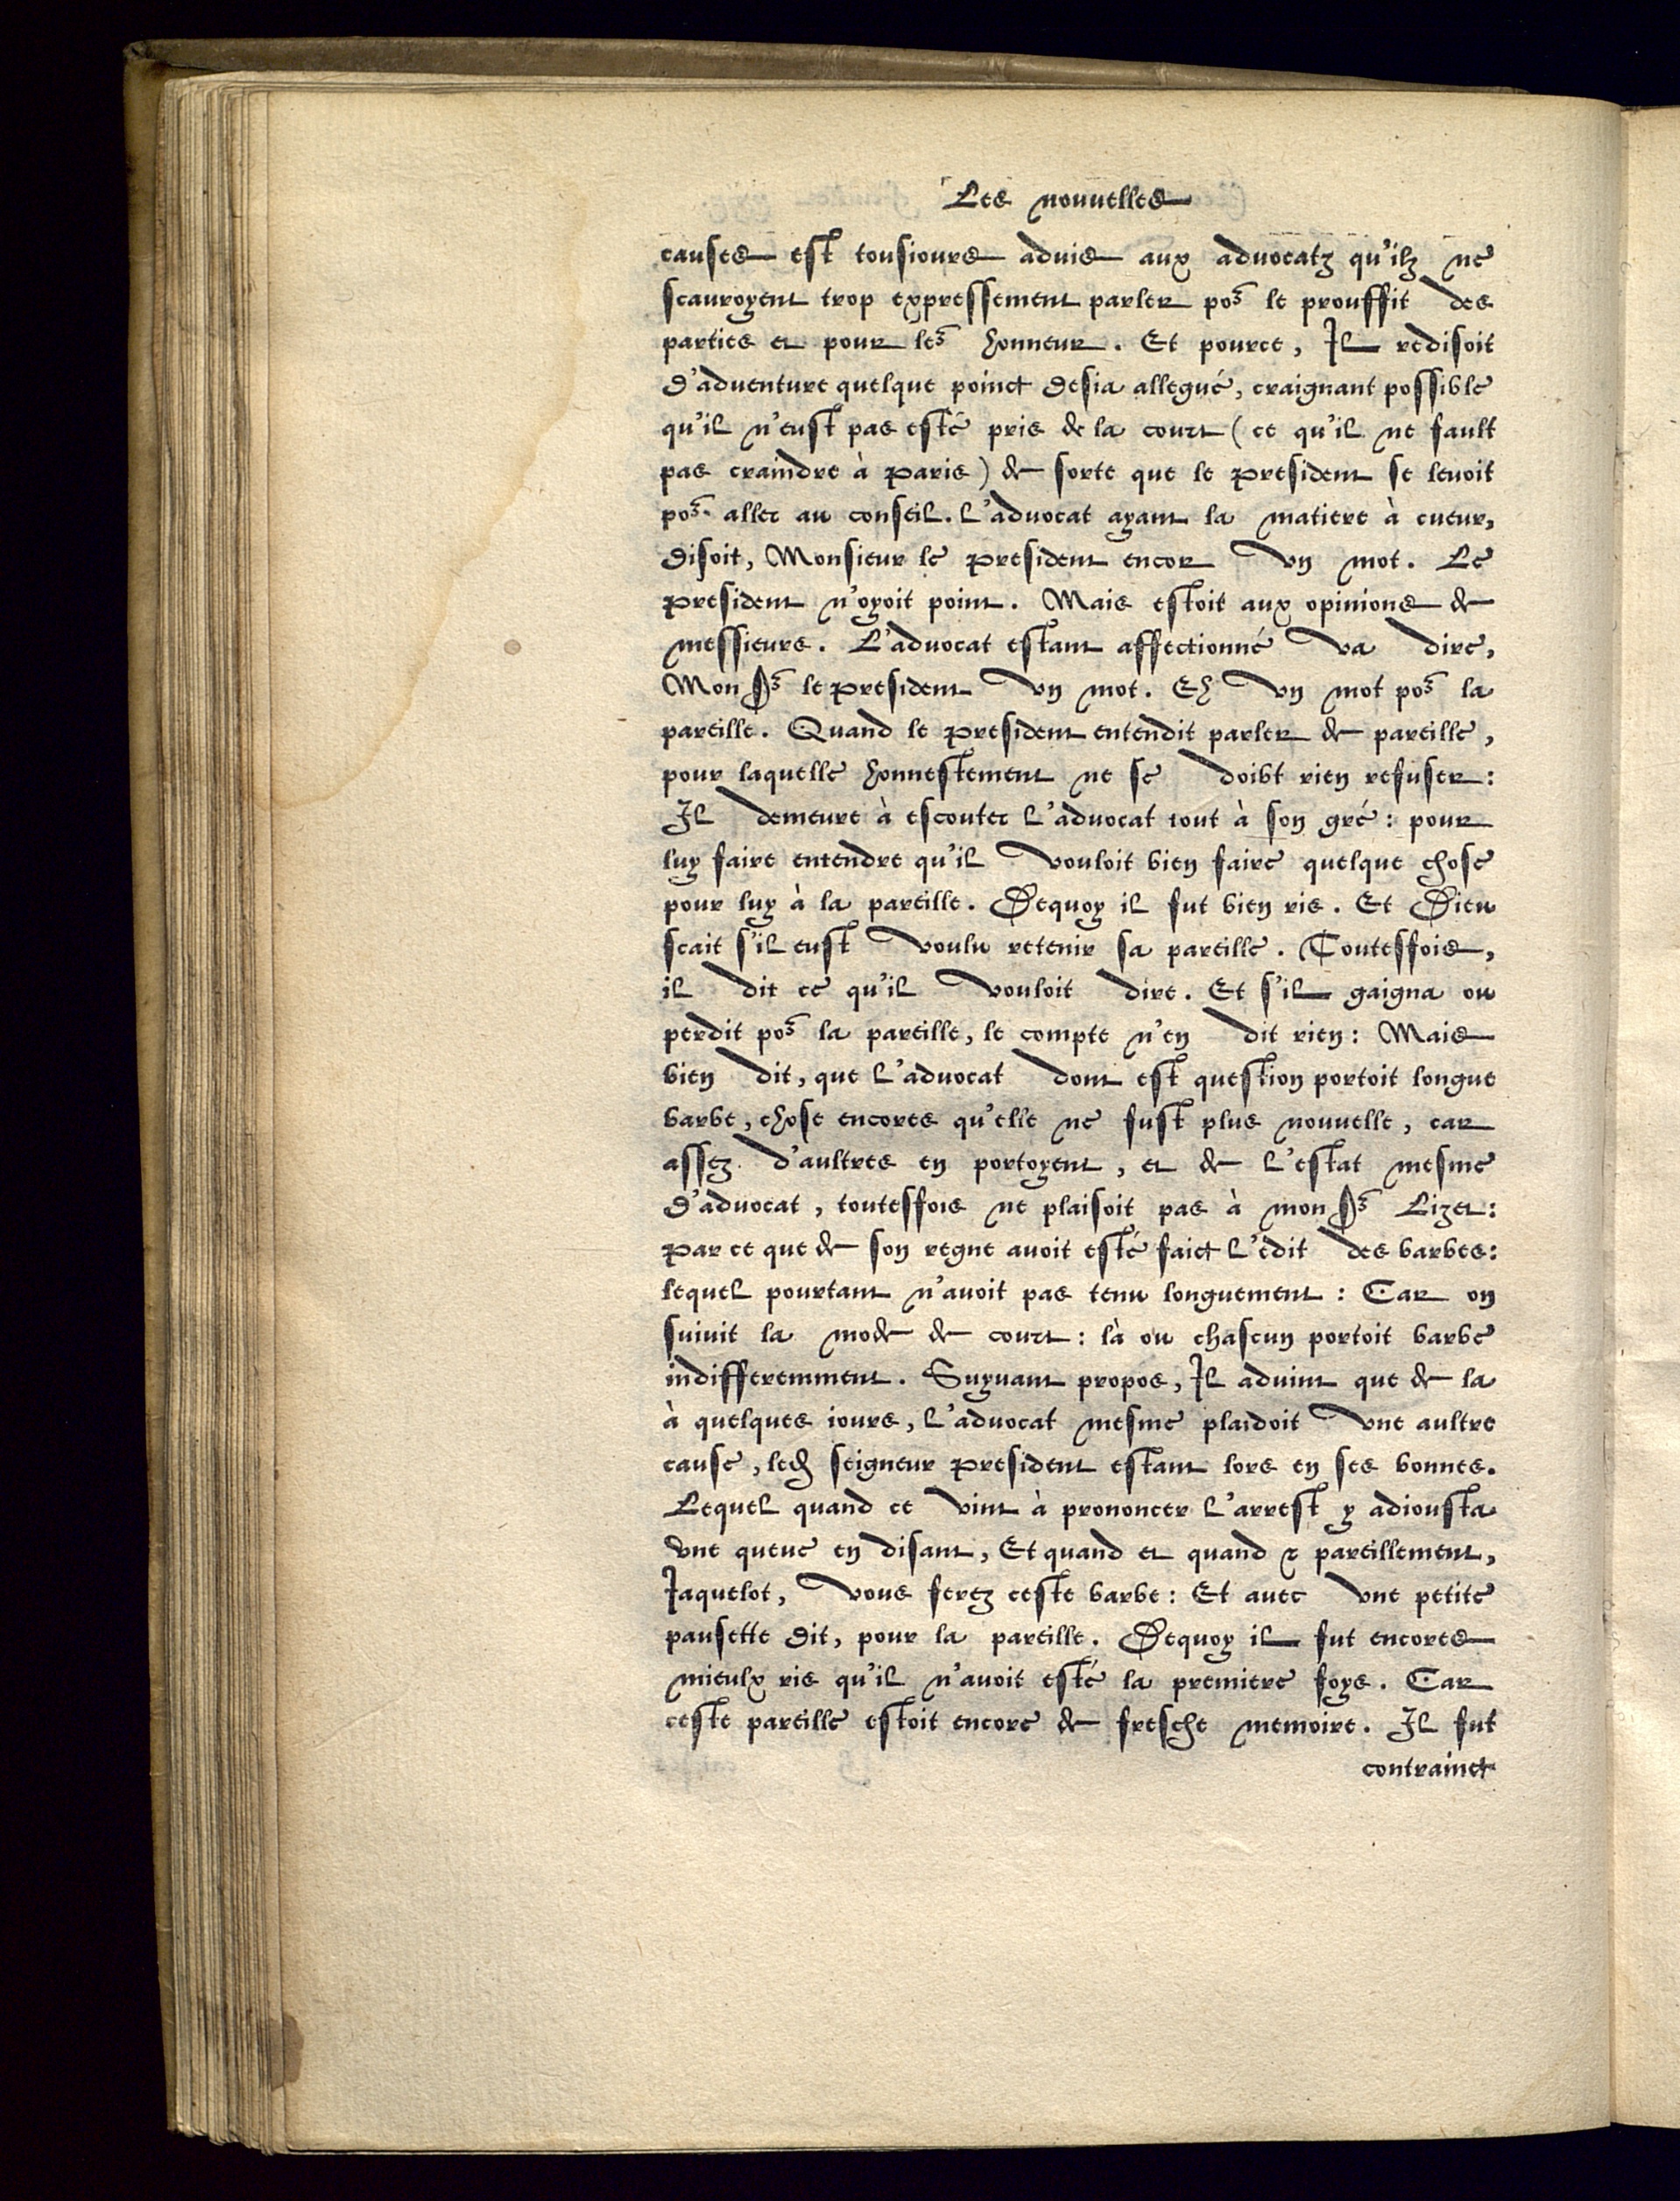 Les nouuelles
causes est tousiours aduis aux aduocatz qu'ilz ne
scauroyent trop expressement parler poʳ le prouffit des
parties et pour leʳ honneur. Et pource, Il redisoit
d'aduenture quelque poinct desia allegué, craignant possible
qu'il n'eust pas esté pris de la court (ce qu'il ne fault
pas craindre à Paris) de sorte que le President se leuoit
poʳ aller au conseil. L'aduocat ayant la matiere à cueur,
disoit, Monsieur le President encor vn mot. Le
President n'oyoit point. Mais estoit aux opinions de
messieurs. L'aduocat estant affectionné va dire,
Mon Sʳ le President vn mot. Eh vn mot poʳ la
pareille. Quand le President entendit parler de pareille,
pour laquelle honnestement ne se doibt rien refuser:
Il demeure à escouter l'aduocat tout à son gré: pour
luy faire entendre qu'il vouloit bien faire quelque chose
pour luy à la pareille. Dequoy il fut bien ris. Et Dieu
scait s'il eust voulu retenir sa pareille. Toutesfois,
il dit ce qu'il vouloit dire. Et s'il gaigna ou
perdit poʳ la pareille, le compte n'en dit rien: Mais
bien dit, que l'aduocat dont est question portoit longue
barbe, chose encores qu'elle ne fust plus nouuelle, car
assez d'aultres en portoyent, et de l'estat mesme
d'aduocat, toutesfois ne plaisoit pas à mon Sʳ Lizet:
Par ce que de son regne auoit esté faict l'edit des barbes:
lequel pourtant n'auoit pas tenu longuement: Car on
suiuit la mode de court: là ou chascun portoit barbe
indifferemment. Suyuant propos, Il aduint que de la
à quelques iours, l'aduocat mesme plaidoit vne aultre
cause, led seigneur President estant lors en ses bonnes.
Lequel quand ce vint à prononcer l'arrest y adiousta
vne queue en disant, Et quand et quand & pareillement,
Jaquelot, vous ferez ceste barbe: Et auec vne petite
pausette dit, pour la pareille. Dequoy il fut encores
mieulx ris qu'il n'auoit esté la premiere foys. Car
ceste pareille estoit encore de fresche memoire. Il fut
contrainct